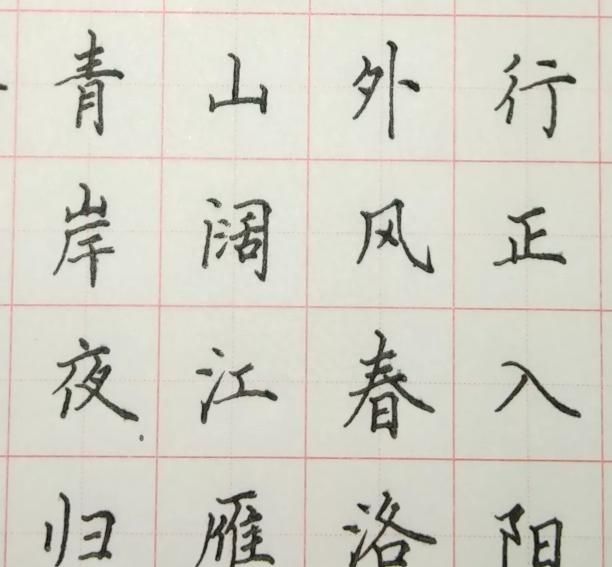 青山外行
岸阔风正
夜江春入
归雁洛阳